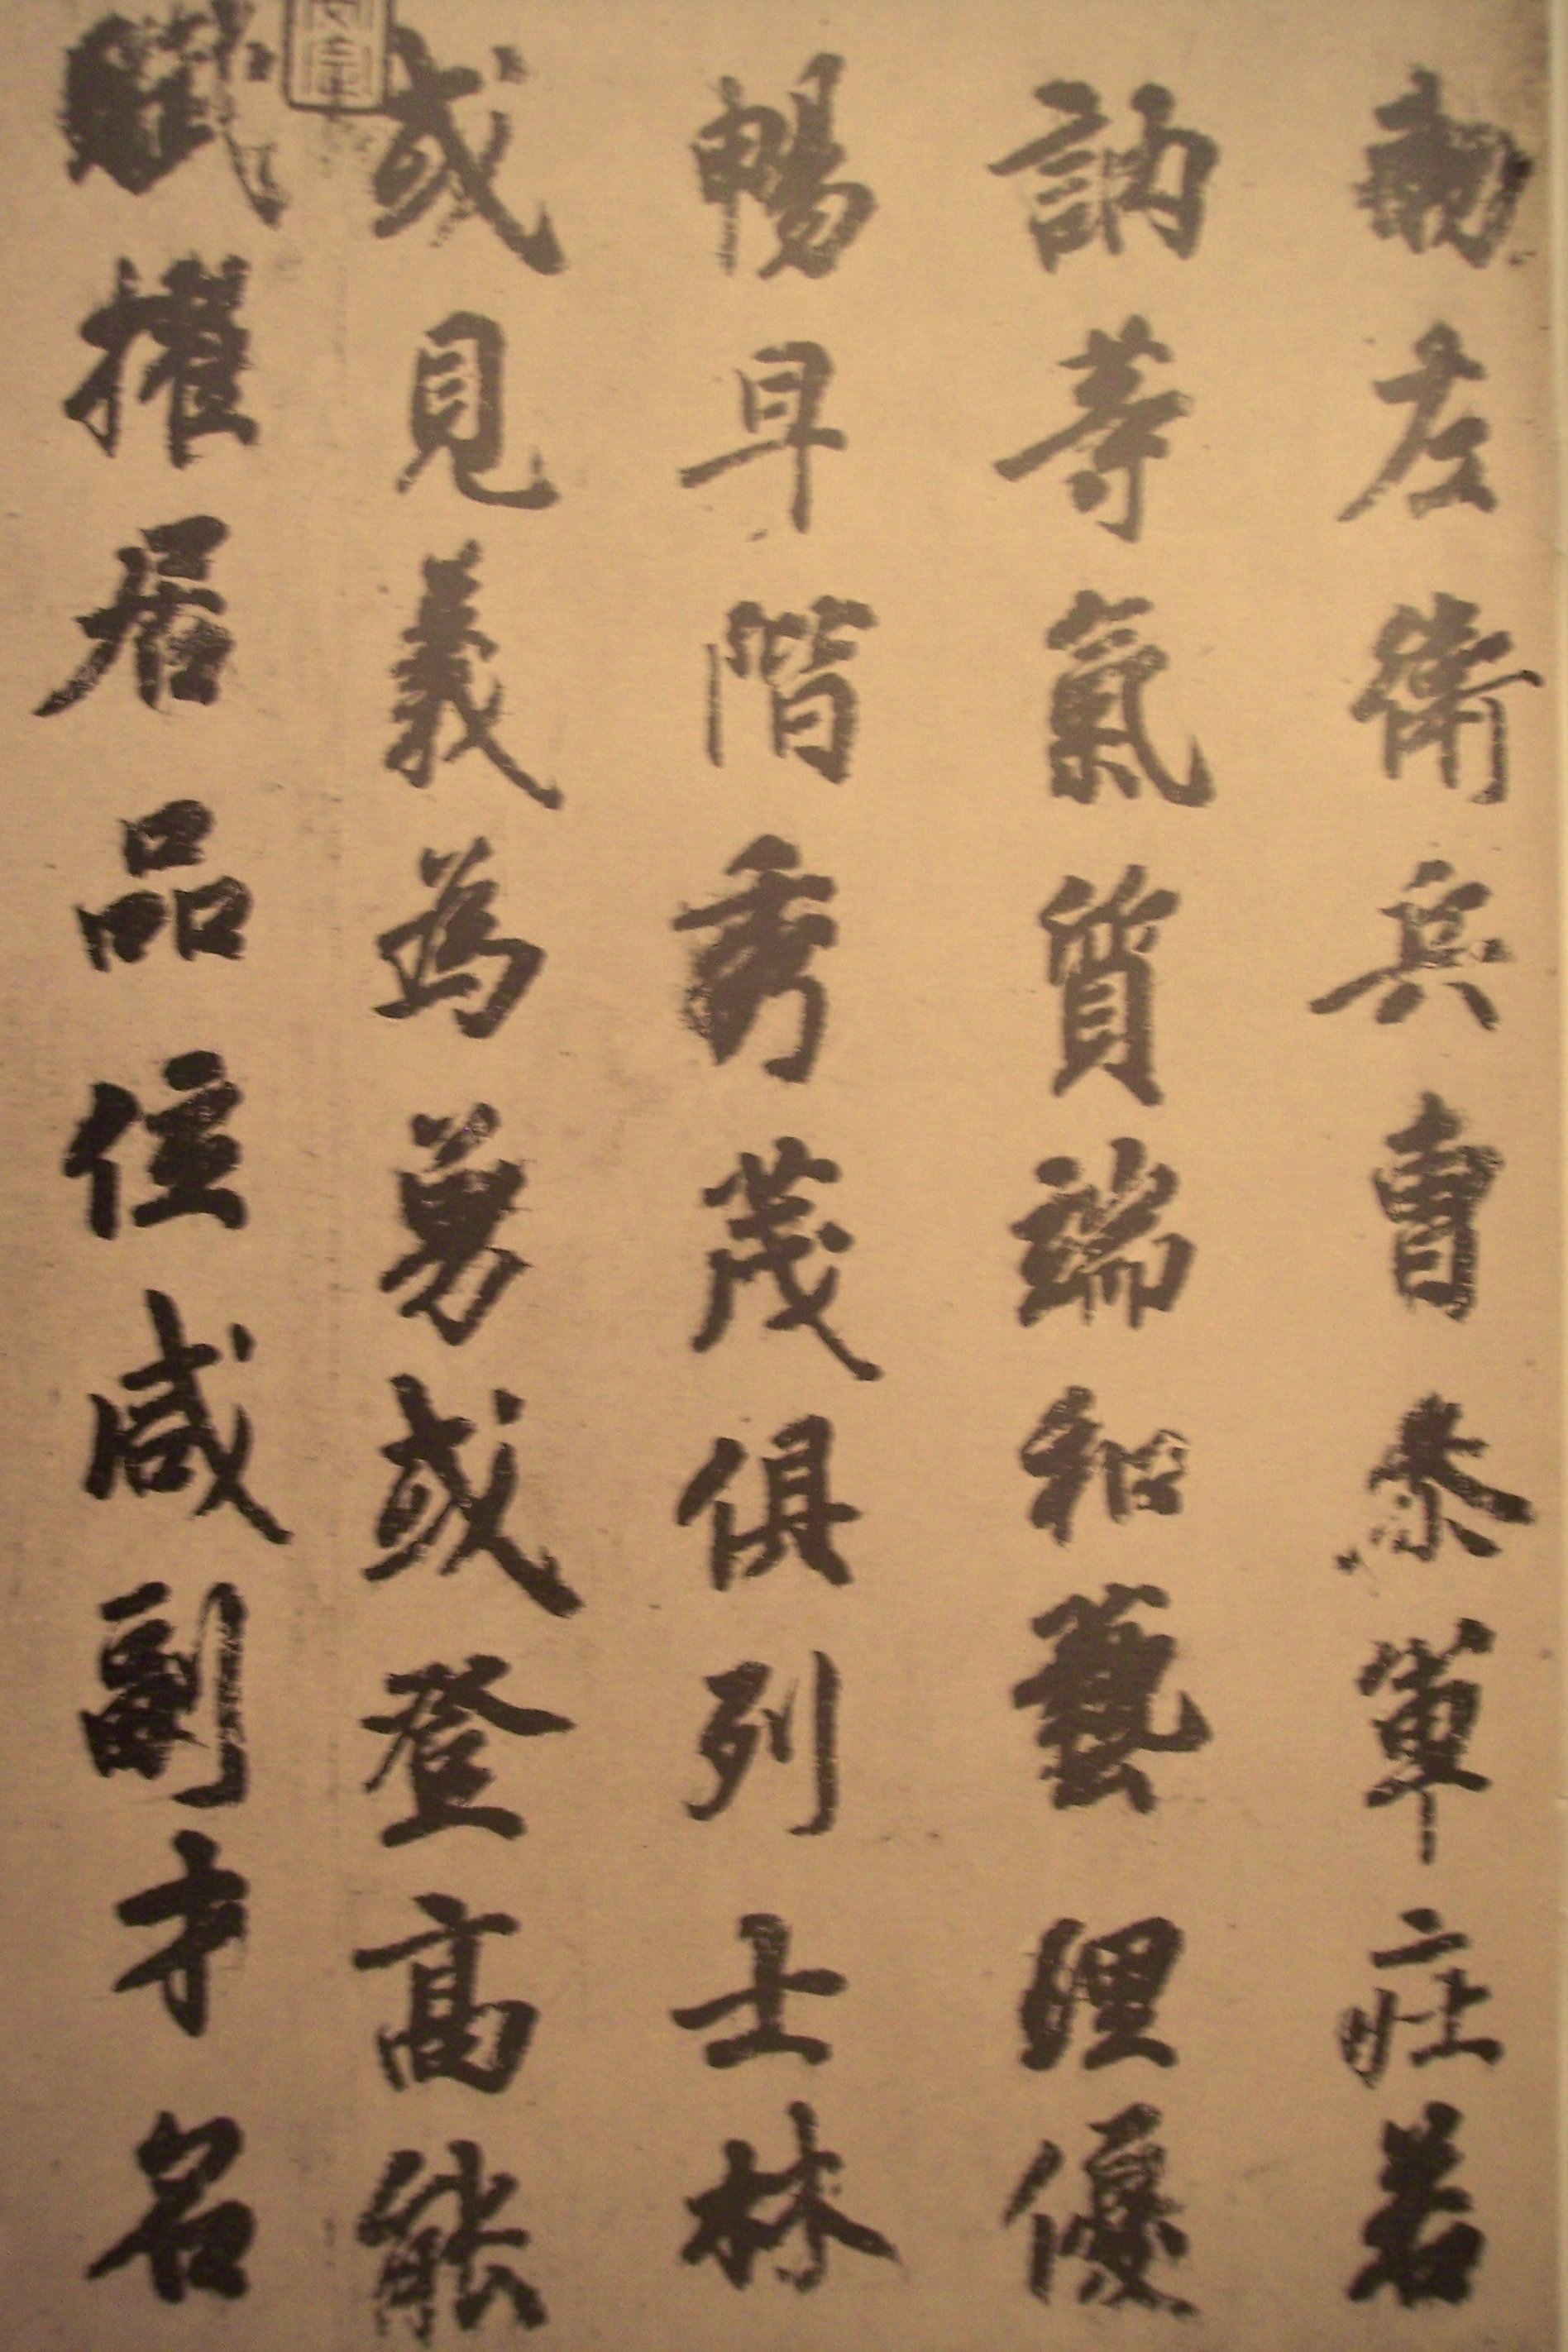 勅左衛兵曹參軍莊若
訥等氣質端和藝理優
暢早階秀茂俱列士林
或見義為勇或登高能
賦擢居品位咸副才名